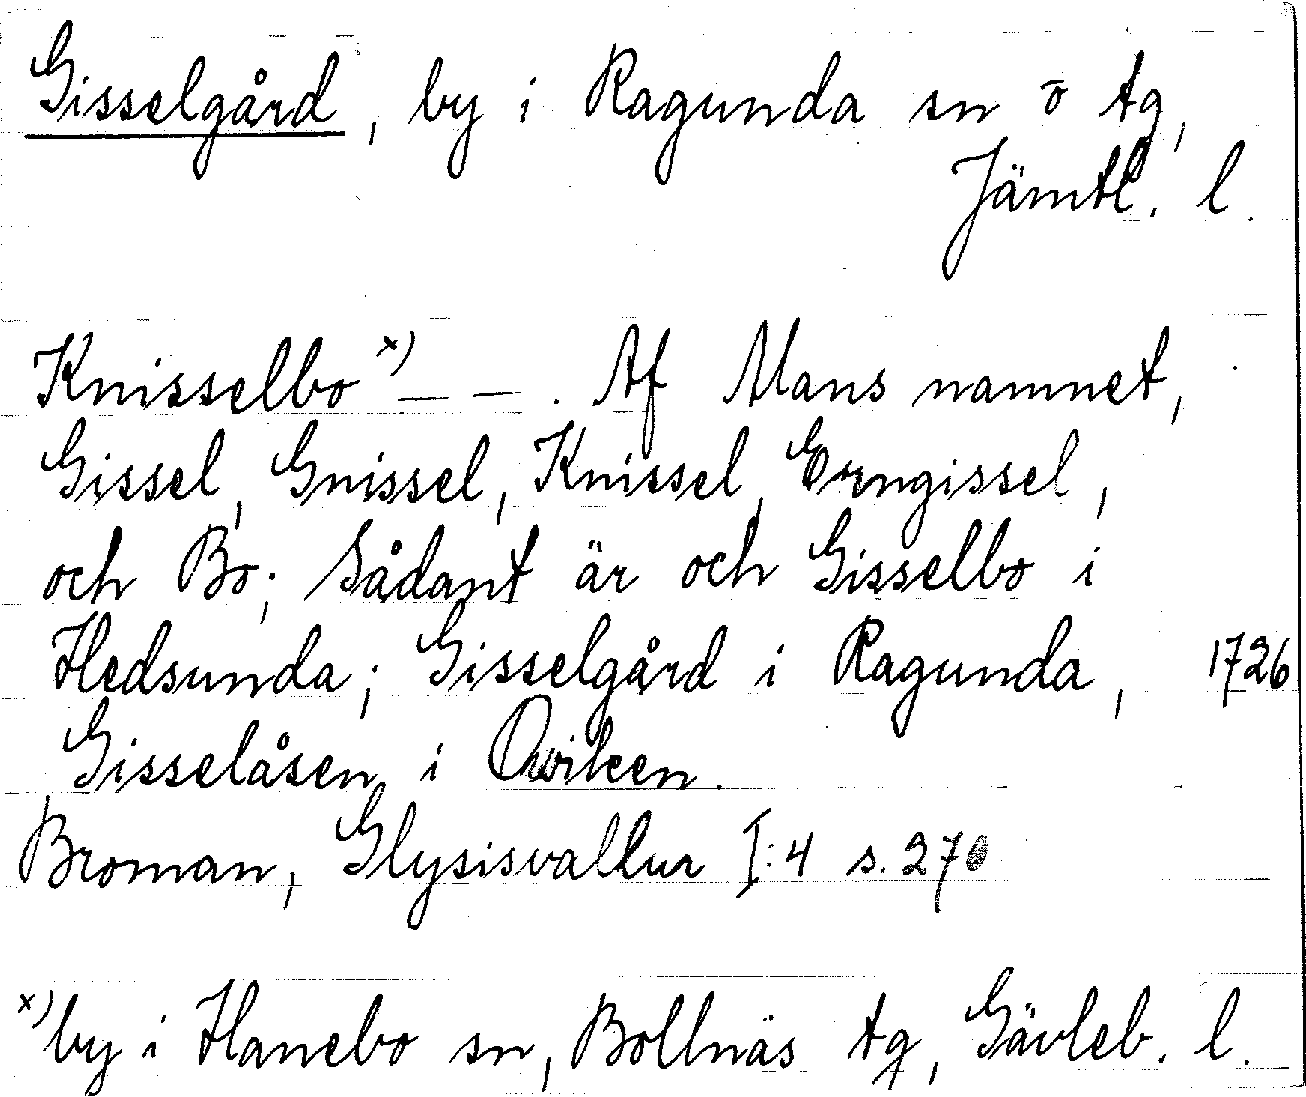 Gisselgård, by i Ragunda sn o tg,
Jämtl. l.
Knisselbo x) — — . Af Mans namnet,
Gissel, Gnissel, Knissel, Erngissel,
och Bo; Sådant är och Gisselbo i
Hedsunda; Gisselgård i Ragunda, 1726
Gisselåsen i Qwikeen.
Broman, Glysisvallur I:4 s. 270
x) by i Hanebo sn, Bollnäs tg, Gävleb. l.